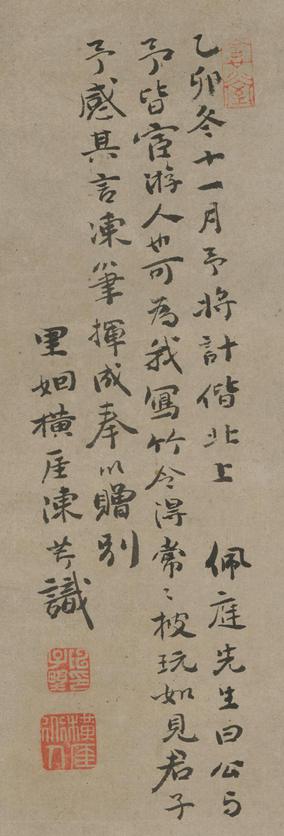 乙卯冬十一月予將計偕北上 佩庭先生曰公与
予皆宦游人也可為我寫竹令得常〻披玩如見君子
予感其言凍筆揮成奉以贈別
里姻橫厓識